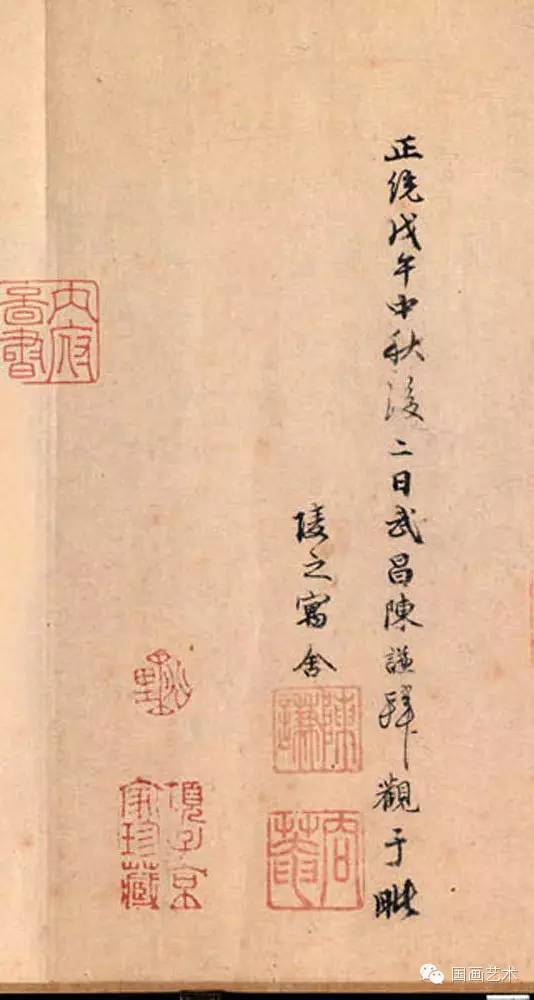 正统戊午中秋後二日武昌陳謙拜觀于毗
陵之寓舍
陳謙
項子京
家珍藏
内府
圖書
国画艺术